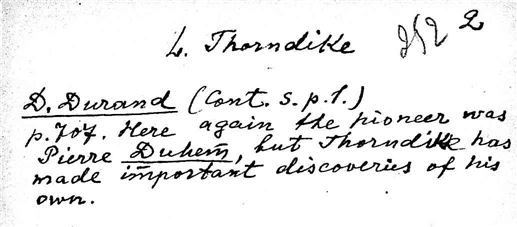 L. Thorndike 2
D. Durand (Cont. s. p. 1.)
p. 707. Here again the pioneer was
Pierre Duhem, but Thorndike has
made important discoveries of his
own.